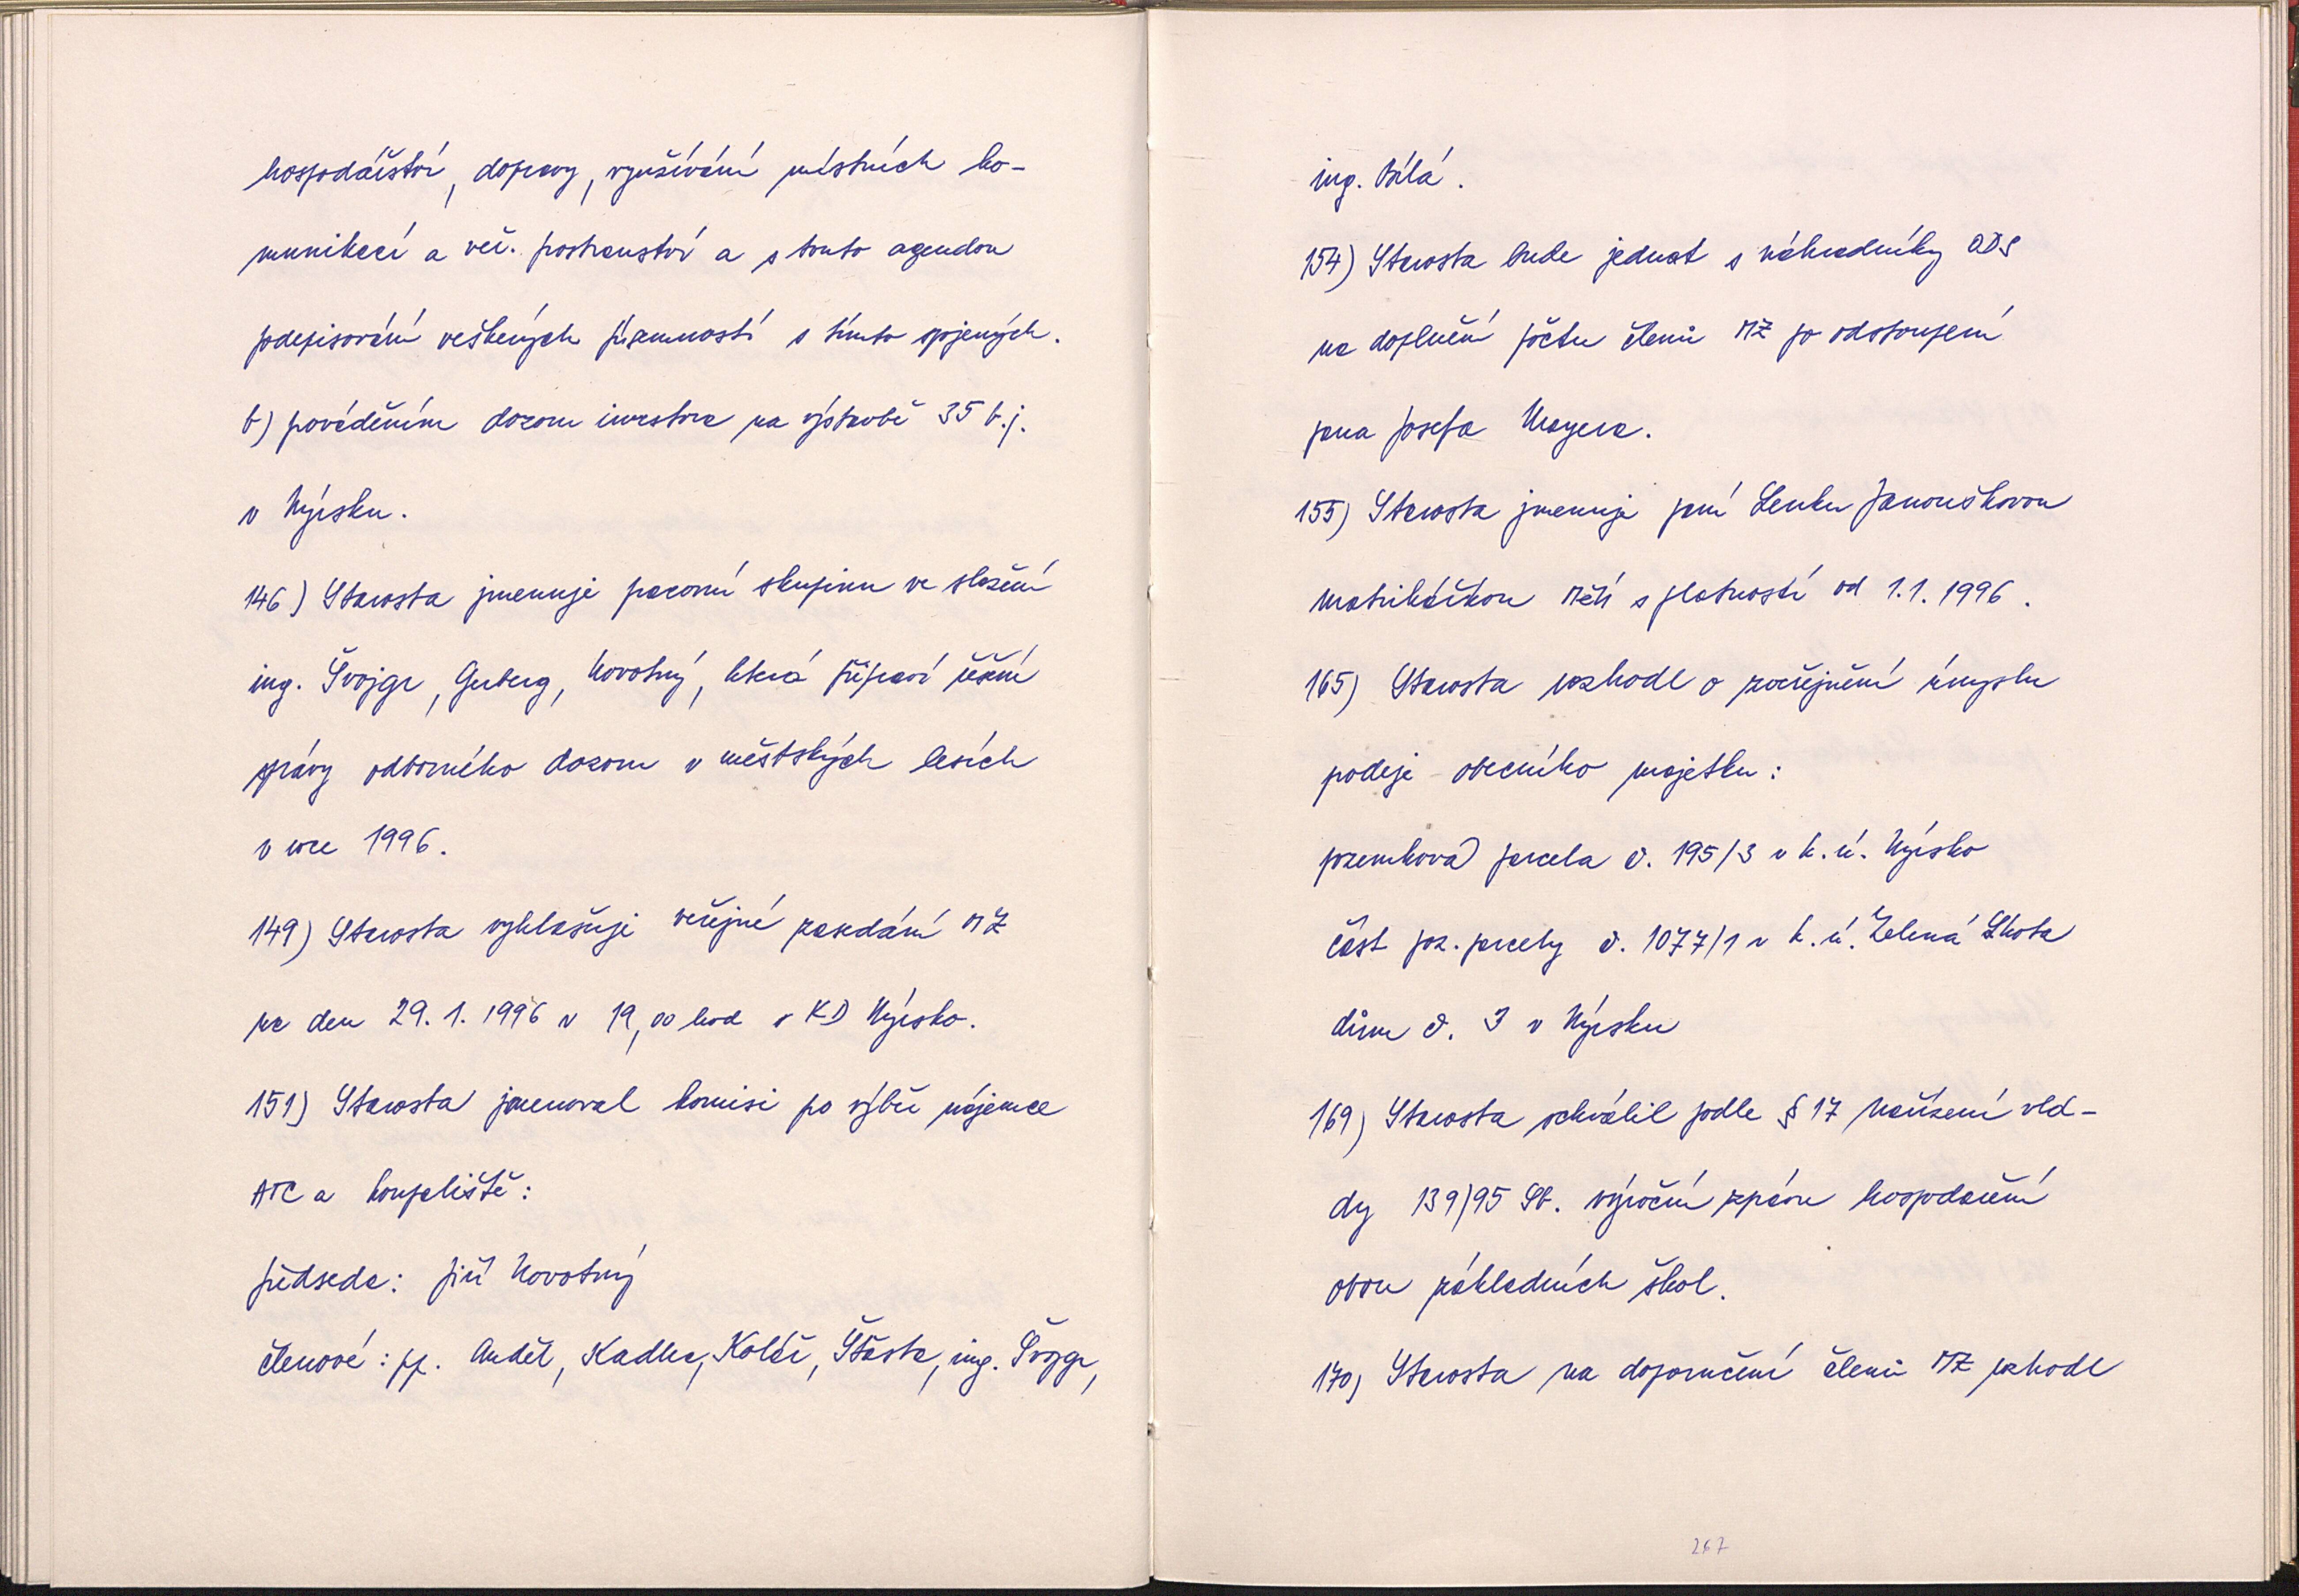 hospodářství, dopravy, využívání místních ko-
munikací a veř. prostranství a s touto agendou
podepisování veškerých písemností s tímto spojených.
b) prováděním dozoru investora na výstavbě 35 b.j.
v Nýrsku.
146) Starosta jmenuje pracovní skupinu ve složení
ing. Švojgr, Gerberg, Novotný, která připraví řešení
správy odborného dozoru v městských lesích
v roce 1996.
149) Starosta vyhlašuje veřejné zasedání MZ
na den 29.1.1996 v 19,00 hod v KD Nýrsko.
151) Starosta jmenoval komisi po výběr nájemce
ATC a koupaliště:
předseda: Jiří Novotný
členové: pp. Anděl, Kadlec, Kolář, Šťasta, ing. Švojgr,
ing. Bílá.
154) Starosta bude jednat s náhradníky ODS
na doplnění počtu členů MZ po odstoupení
pana Josefa Mayera.
155) Starosta jmenuje paní Lenku Janouškovou
matrikářkou MěÚ s platností od 1.1.1996.
165) Starosta rozhodl o zveřejnění úmyslu
prodeje obecního majetku:
pozemková parcela č. 195/3 v k.ú. Nýrsko
část poz. parcely č. 1077/1 v k.ú. Zelená Lhota
dům č. 3 v Nýrsku
169) Starosta schválil podle § 17 Nařízení vlá-
dy 139/95 Sb. výroční zprávu hospodaření
obou základních škol.
170) Starosta na doporučení členů MZ rozhodl
267